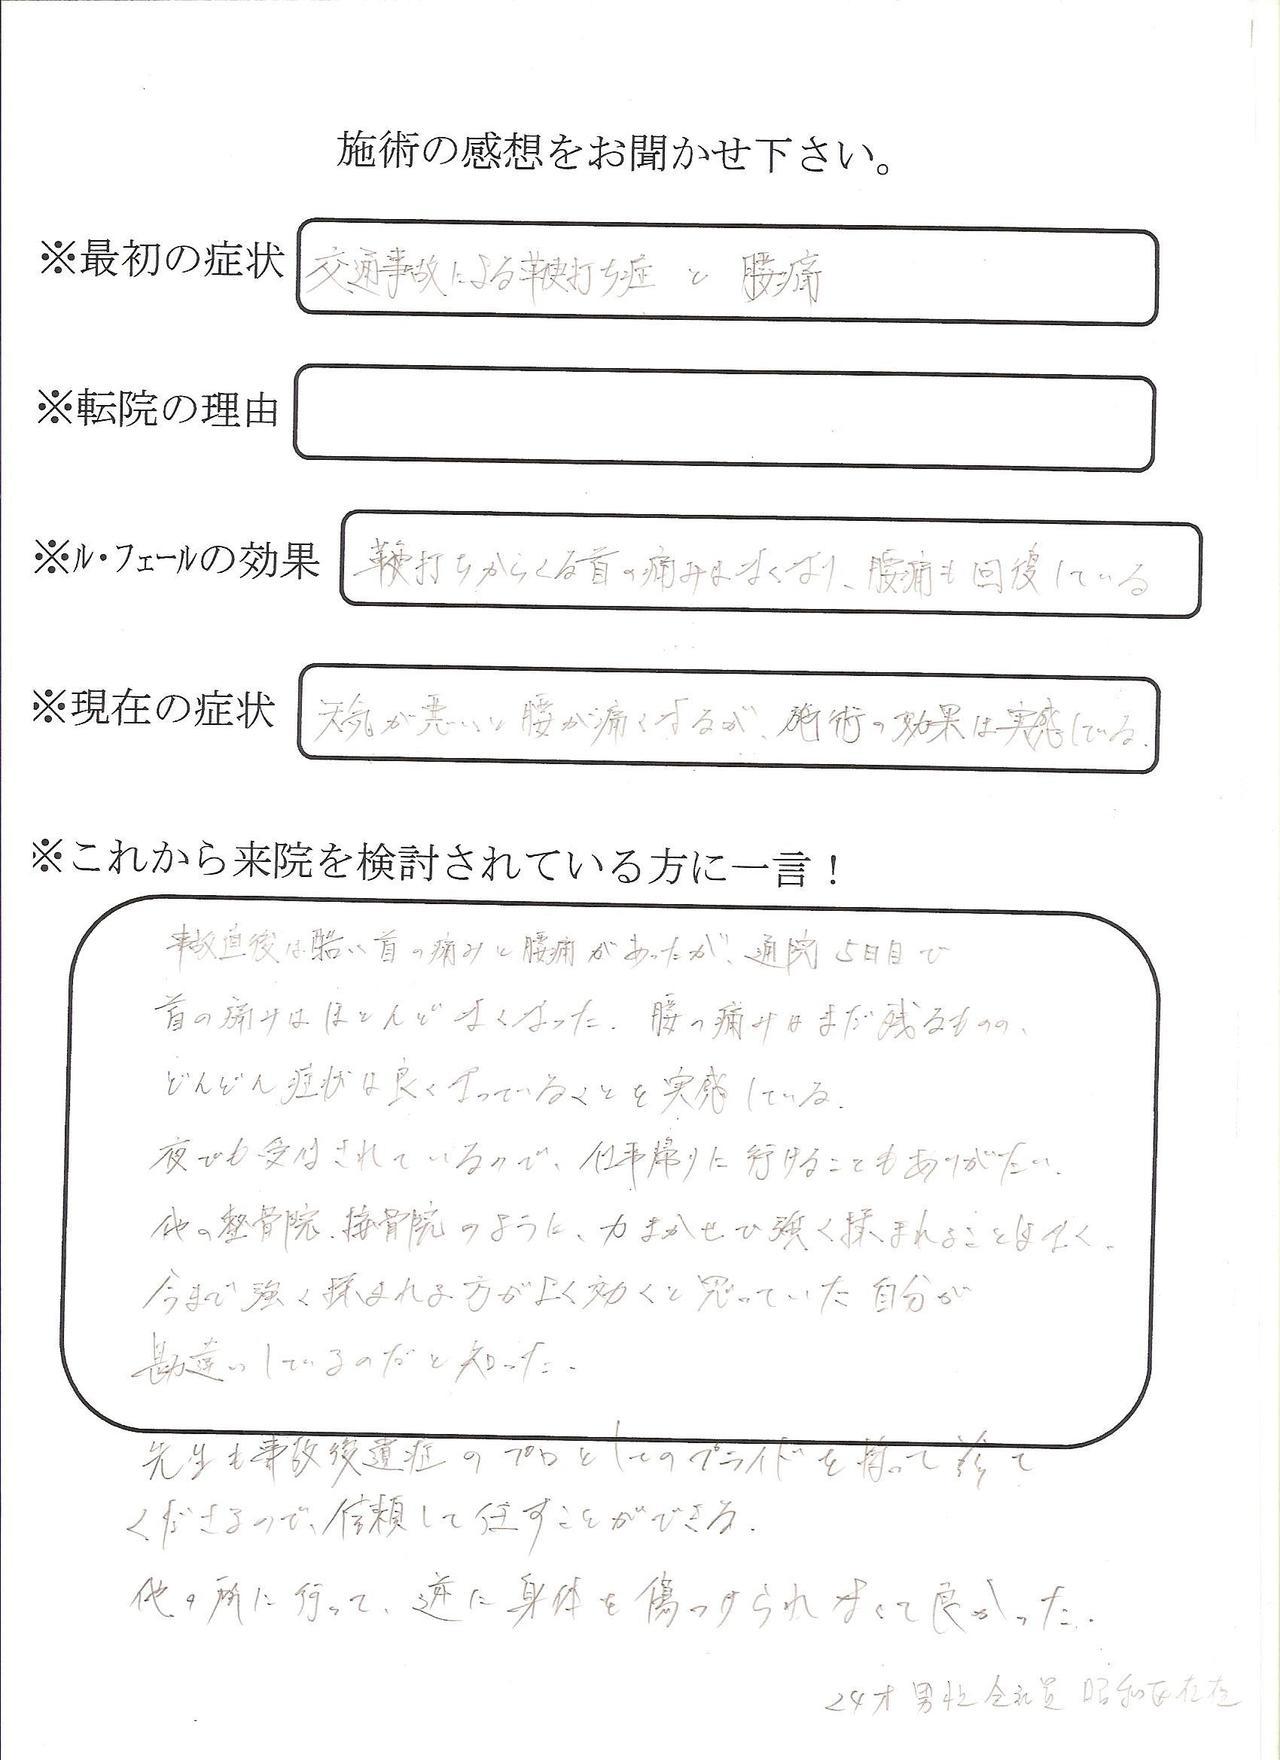 施術の感想をお聞かせ下さい。
※最初の症状
交通事故による鞭打ち症 と 腰痛
※転院の理由
※ル・フェールの効果
鞭打ちからくる首の痛みはなくなり、腰痛も回復している
※現在の症状
天気が悪いと腰が痛くなるが、施術の効果は実感している。
※これから来院を検討されている方に一言！
事故直後は酷い首の痛みと腰痛があったが、通院5日目で
首の痛みはほとんどなくなった。腰の痛みはまだ残るものの、
どんどん症状は良くなっていることを実感している。
夜でも受付されているので、仕事帰りに行けることもありがたい。
他の整骨院、接骨院のように、力まかせで強く揉まれることはなく、
今まで強く揉まれる方がよく効くと思っていた自分が
勘違いしているのだと知った。
先生も事故後遺症のプロとしてのプライドを持って診て
くださるので、信頼して任すことができる。
他の所に行って、逆に身体を傷つけられなくて良かった。
24才 男性 会社員 昭和区在住